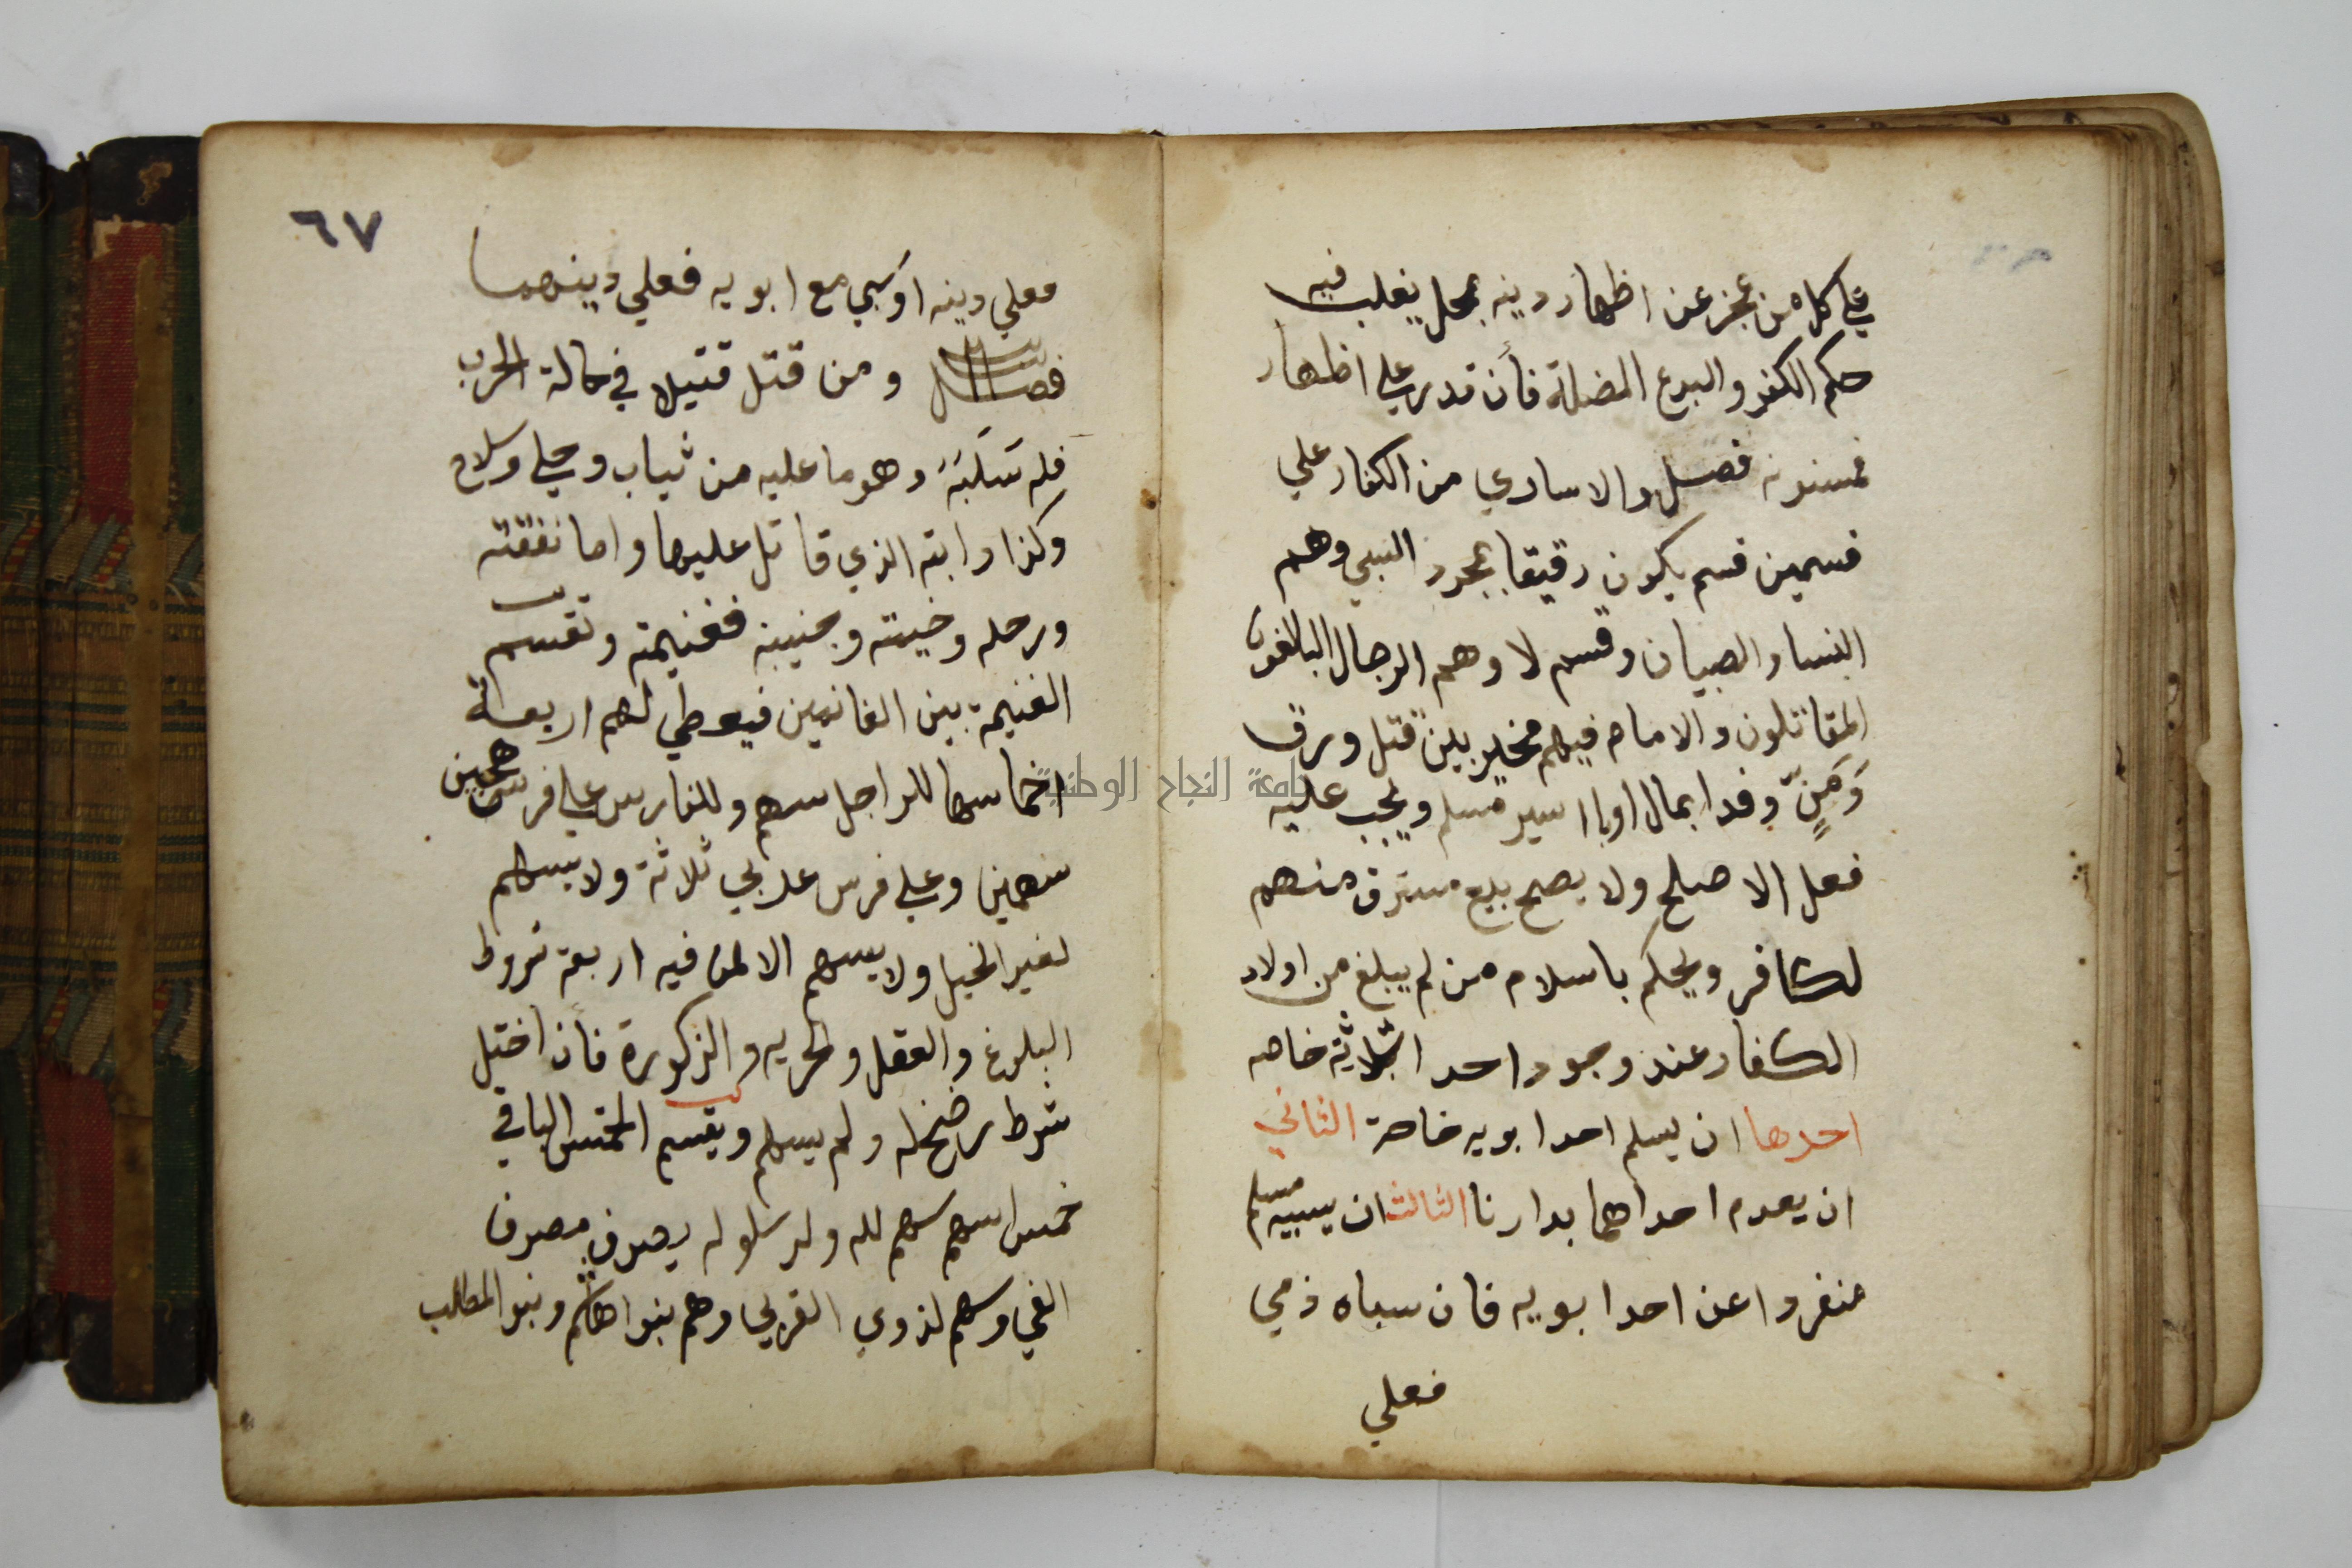 علي كل من عجز عن اظهار دينه بمحل يغلب فيه
حكم الكفر والبدع المضلة فأن قدر علي اظهار
فمسنونه فصل والاساري من الكفار علي
قسمين قسم يكون رقيقا بمجرد السبي وهم
النسا والصبيان وقسم لا وهم الرجال البالغون
المقاتلون والامام فيهم مخير بين قتل ورق
وَمَنٍّ وفدا بمال او باسير مسلم ويجب عليه
فعل الاصلح ولا يصح بيع مسترق منهم
لكافر ويحكم باسلام من لم يبلغ من اولاد
الكفار عند وجود احد اثلاثة خاصه
احدها ان يسلم احد ابويه خاصة الثاني
ان يعدم احداهما بدارنا الثالث ان يسبيه مسلم
منفردا عن احد ابويه فان سباه ذمي
فعلي
٦٧
فعلي دينه او سبي مع ابويه فعلي دينهما
فصل ومن قتل قتيلا في حالة الحرب
فله سَلَبَهُ وهو ما عليه من ثياب وحلي وسلاح
وكذا دابته الذي قاتل عليها واما نفقته
ورحله وخيمته وجنيبه فغنيمة وتقسم
الغنيمة بين الغانمين فيعطي لهم اربعة
اخماسها للراجل سهم وللفارس علي فرس هجين
سهمين وعلي فرس عربي ثلاثة ولا يسهم
لغير الخيل ولا يسهم الا لمن فيه اربعة شروط
البلوغ والعقل والحريه والذكورة فأن اختل
شرط رضخ له ولم يسهم ويقسم الخمس الباقي
خمس اسهم سهم لله ولرسلوله يصرف مصرف
الفي وسهم لذوي القربي وهم بنوا هاشم وبنو المطلب
جامعة النجاح الوطنية